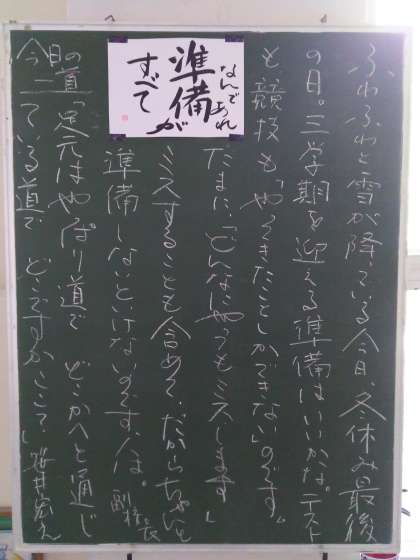 ふわふわと雪が降っている今日、冬休み最後
の日。三学期を迎える準備はいいかな。テスト
も競技も「やってきたことしかできない」のです。
たまに、「どんなにやってもミスします」
ミスすることも含めて、だからちゃんと
準備しないといけないのです、人は。 副校長
なんであれ
準備が
すべて
今日の一首「足元はやっぱり道で どこかへと通じ
ている道で どこですかここ」 笹井宏之